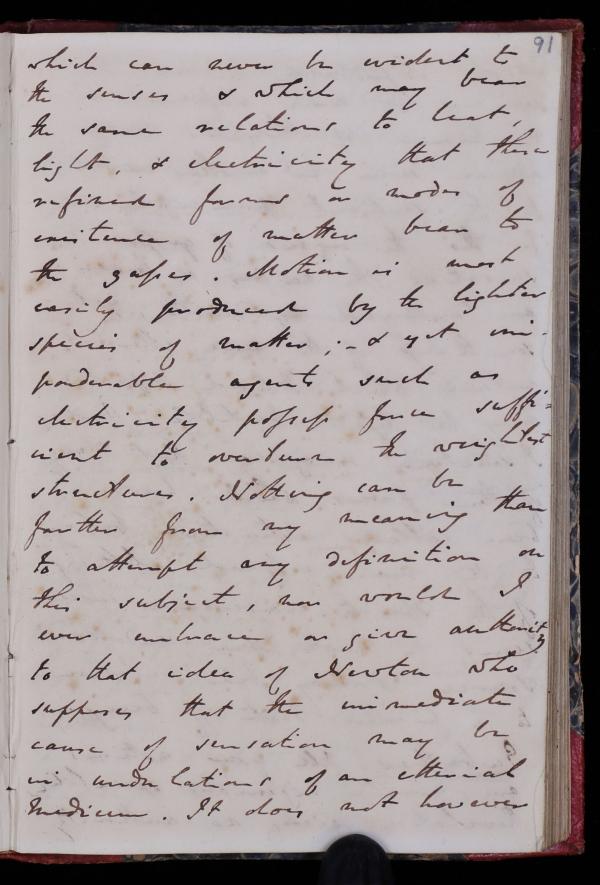 91
which can never be evident to
the senses & which may bear
the same relations to heat,
light, & electricity that these
refined forms or modes of
existence of matter bear to
the gasses. Motion is most
easily produced by the lighter
species of matter; - & yet im-
ponderable agents such as
electricity possess force suffi=
cient to overturn the weightiest
structures. Nothing can be
farther from my meaning than
to attempt any definition on
this subject, nor would I
ever embrace or give authority
to that idea of Newton who
supposes that the immediate
cause of sensation may be
in undulations of an etherial
medium. It does not however